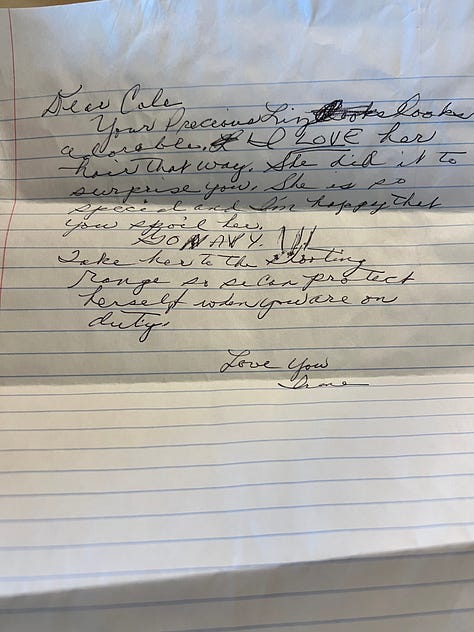 Dear Cole
Your Precious Liz looks
adorable. I LOVE her
hair that way. She did it to
surprise you. She is so
special and I'm happy that
you spoil her.
GO NAVY. !!!
Take her to the shooting
range so se can protect
herself when you are on
duty.
Love You